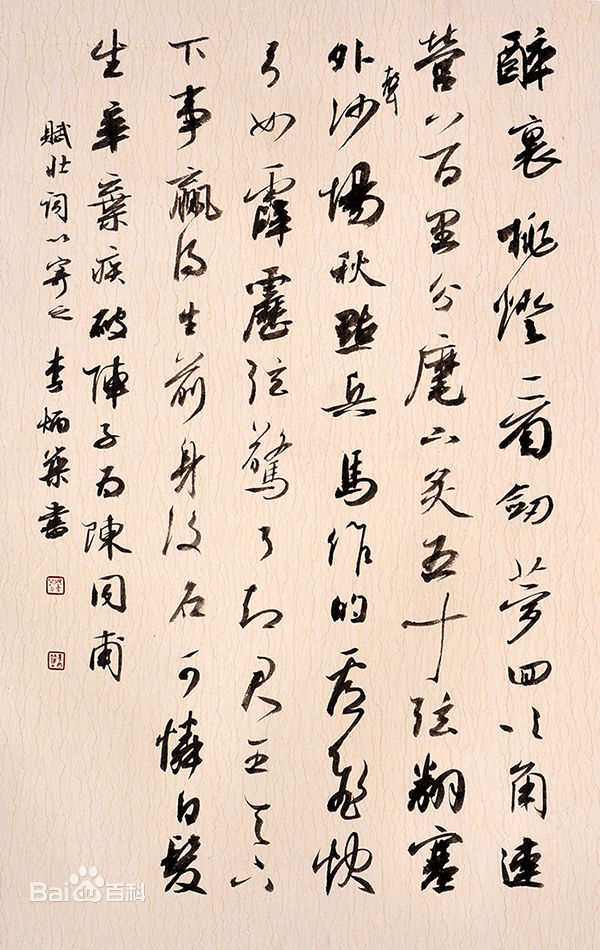 醉裏挑燈看劍夢回吹角連
營八百里分麾下炙五十弦翻塞
外聲沙場秋點兵馬作的盧飛快
弓如霹靂弦驚了却君王天下
下事贏得生前身後名可憐白髮
生辛棄疾破陣子為陳同甫
賦壯詞以寄之 李炳書
Baidu百科